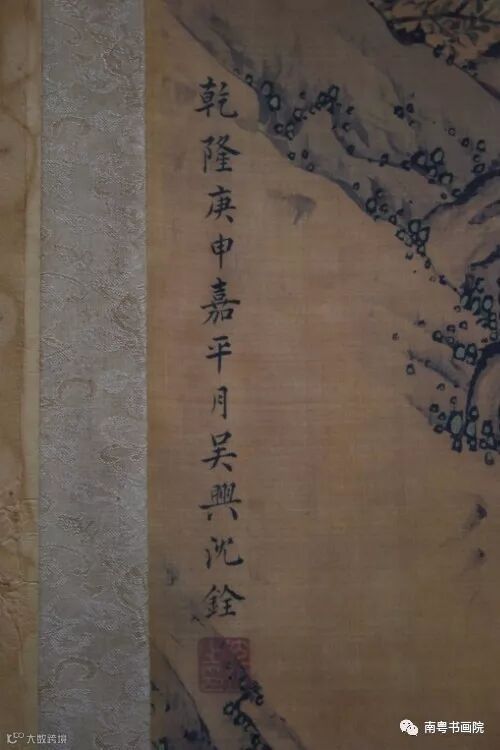 乾隆庚申嘉平月吴興沈銓
大数跨境
南粤书画院